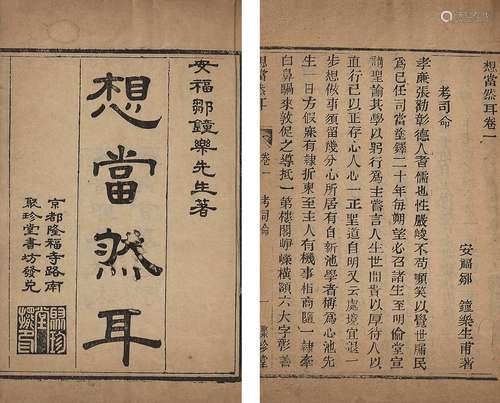 安福鄒鐘樂先生著
想當然耳
京都隆福寺路南
聚珍堂書坊發兌
想當然耳卷一
安福鄒 鐘樂生甫著
老司命
孝廉張勤彰德人耆儒也性嚴峻不苟嚬笑以覺世牖民
為已任司當塗鐸二十年每朔望必召諸生至明倫堂宣
聖諭其學以躬行為主嘗言人生世間當以厚待人以
直行已以正存心人心一正聖道自明又云處境宜退一
步想作事須留幾分心所居有自新池學者稱為心池先
生一日方假寐有隸折柬至主人有機事相商隨一隸牽
白鼻騧來敦促之導抵一第樓閣崢嶸橫額六大字彰善
想當然耳
卷一
老司命
一
聚珍堂